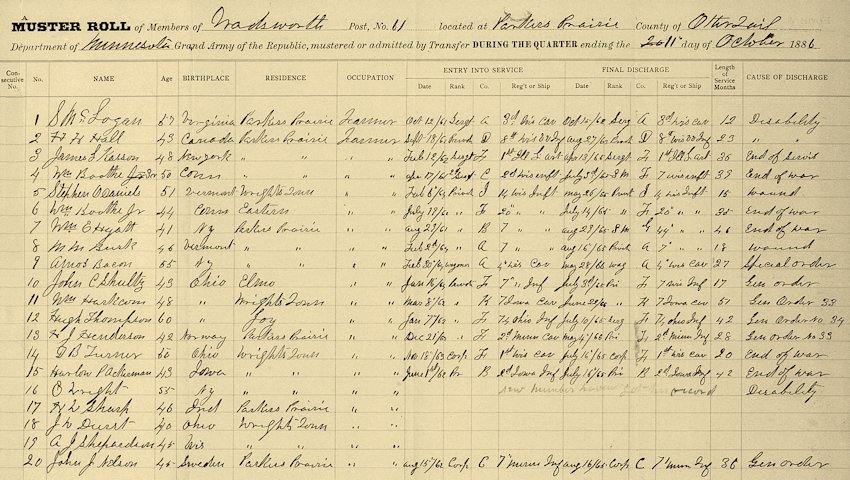 A MUSTER ROLL of Members of Wadsworth Post, No. 61 located at Parkers Prairie County of Ottertail
Department of Minnesota Grand Army of the Republic, mustered or admitted by Transfer DURING THE QUARTER ending the 11 day of October 1886
Con-secutive No. No. NAME Age BIRTHPLACE RESIDENCE OCCUPATION ENTRY INTO SERVICE FINAL DISCHARGE Length of Service Months CAUSE OF DISCHARGE
Date Rank Co. Reg't or Ship Date Rank Co. Reg't or Ship
1 S Mc Logan 57 Virginia Parkers Prairie Farmer Oct 12/61 Sergt A 3rd wis cav Oct 14/62 Serg A 3rd wis cav 12 Disability
2 Hall 43 Canada Parkers Prairie Farmer Sept 18/61 D 8th wis Inf aug 27/63 D 8th wis Inf 23 " "
3 James 48 New york " " " Feb 12/62 Sergt F 1st Ill L art apr 13/65 Sergt F 1st Ill L art 36 End of
4 Wm Boothe Sr 50 Conn " " " C July 3rd/65 F 39 End of war
5 Stephen Daniels 51 Vermont Wrights Town " I 14 wis Inft may 26/65 I 4 wis Inft 15 wound
6 Wm Boothe Jr 44 Conn Eastern " July 18/61 " F 20" " " July 14/65 " F 20" " " 35 End of war
7 Wm E Hyatt 41 Ny Parkers Prairie " aug 23/61 " B 7 " " aug 23/65 G " " 46 End of war
8 M M 46 Vermont " " " A 7 " " aug 16/65 A 7" " " 18 wound
9 Amos Bacon 55 Ny " " " A 4th wis Cav may 28/66 A 4th wis Cav 27 Special order
10 John C Shultz 43 Ohio Elmo " F 7" " Inf July 3rd/65 F 7 wis Inf 17 Gen order
11 Wm 48 " Wrights Town " Mar 8/62 " K 7 Iowa Cav " K 7 Iowa cav 51 Gen Order 33
12 Hugh Thompson 60 " " Jan 7/62 " F 74 Ohio Inf July 10/65 Serg F 74 ohio Inf 42 Gen order no 34
13 H J Henderson 42 Norway Parkers Prairie " Dec 21/63 " F 2d Minn Cav may 4/66 F 2d Minn Inf 28 Gen order no 33
14 D B Turner 60 Ohio Wrights Town " Nov 18/63 Corp F 1st wis cav July 16/65 Corp F 1st wis cav 20 End of war
15 Harlow P Ackerman 43 Iowa " " " June 1st/62 Pr B 2d Iowa Inf July 16/65 B 2d Iowa Inf 42 End of war
16 O Wright 55 Ny " " " record Disability
17 Sharp 46 Ind Parkers Prairie "
18 J W Durst 40 Ohio Wrights Town "
19 A J Shepardson 45 Wis " " "
20 John J Nelson 45 Sweden Parkers Prairie " aug 15/62 Corp C 7th minn Inf aug 16/65 Corp C 7th minn Inf 36 Gen order